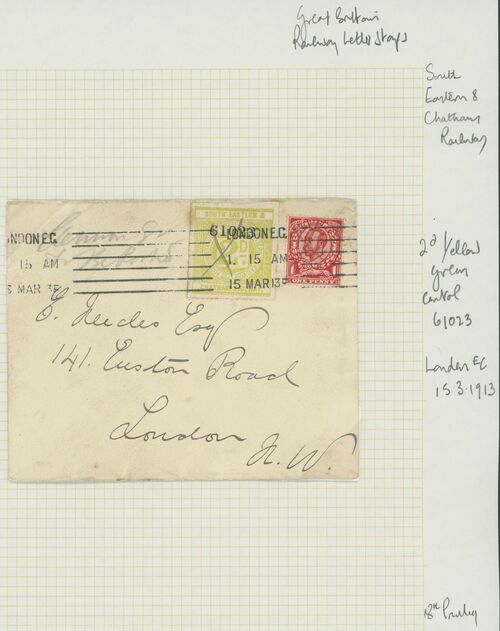 Great Britain
Railway Letter Stamps
South
Eastern &
Chatham
Railway
SOUTH EASTERN &
61023
LONDON.E.C.
1. 15 AM
15 MAR 13
ONDON.E.C.
15 AM
5 MAR 13
ONE PENNY
2d Yellow
green
Control
61023
London EC
15.3.1913
Esq
141. Euston Road
London
N.W.